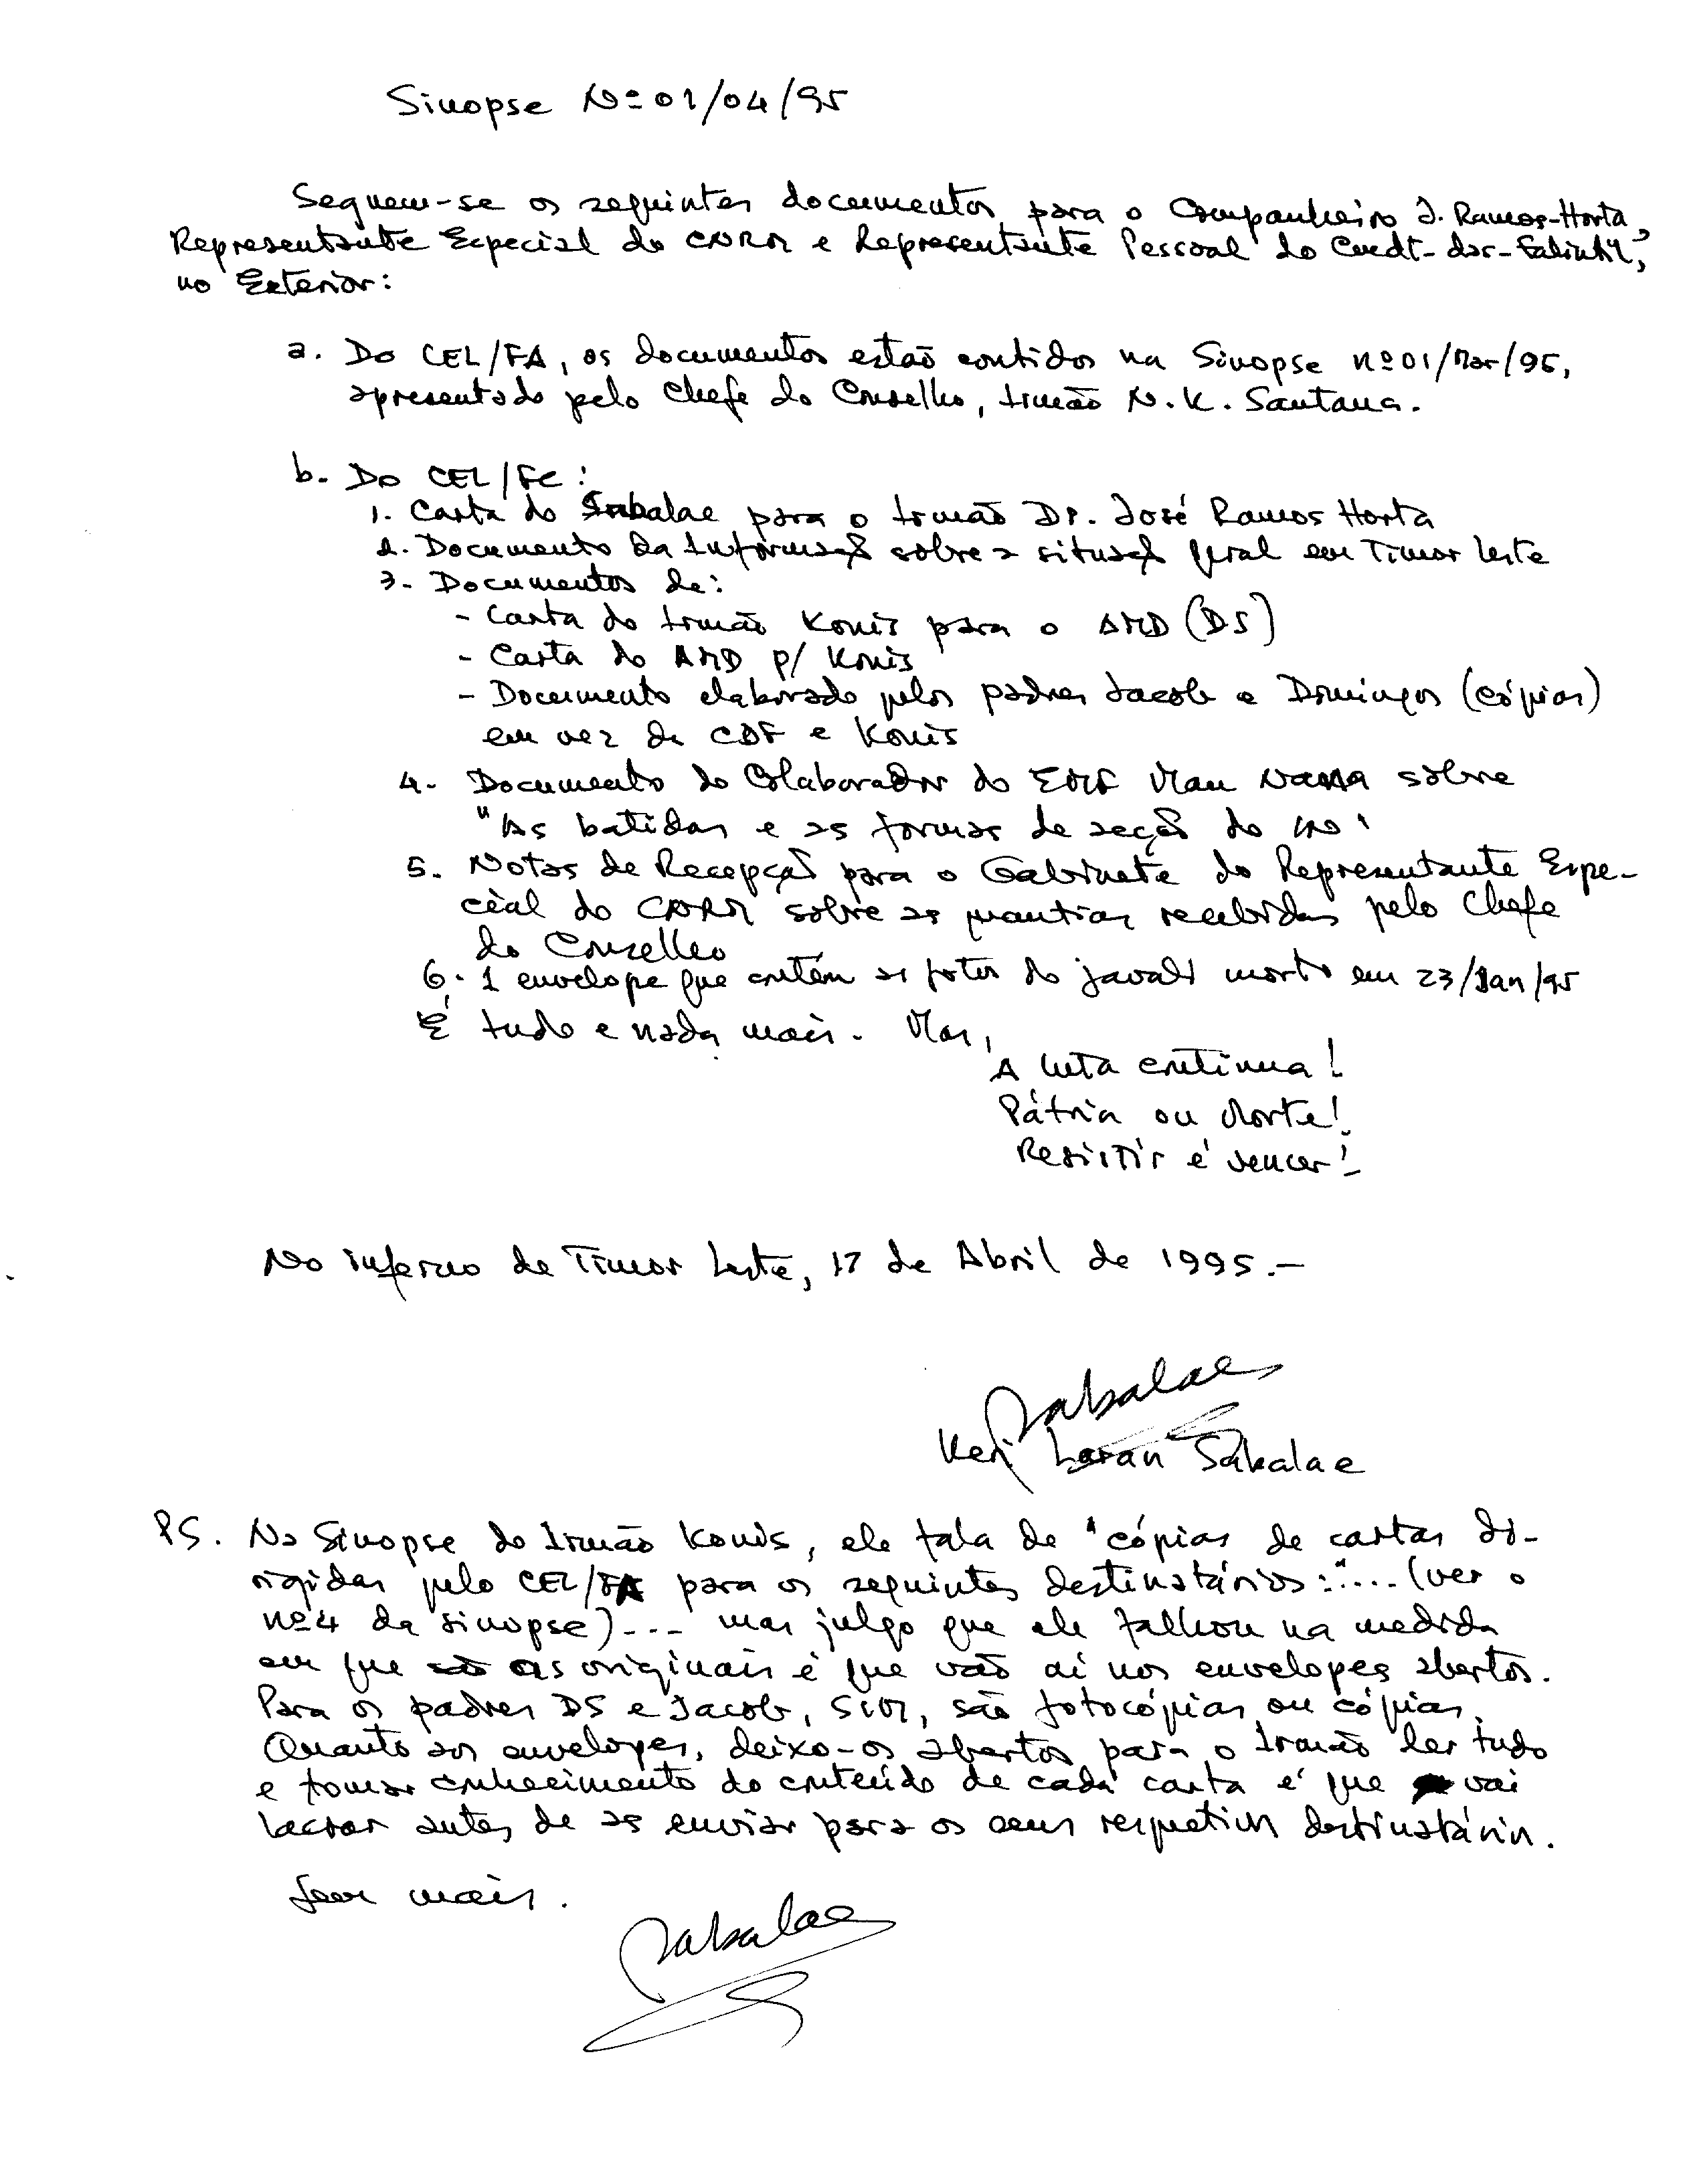 Sinopse Nº 01/04/95
Seguem-se os seguintes documentos para o Companheiro J. Ramos-Horta,
Representante Especial do CNRM e Representante Pessoal do Cmdt-das-Falintil,
no Exterior:
a. Do CEL/FA, os documentos estão contidos na Sinopse nº 01/Mar/95,
apresentado pelo Chefe do Conselho, Irmão N. K. Santana.
b. Do CEL/FC:
1. Carta do Sabalae para o Irmão Dr. José Ramos Horta
2. Documento da Informação sobre a situação geral em Timor Leste
3. Documentos de:
- Carta do Irmão Konis para o AMD (DS)
- Carta do AMD p/ Konis
- Documento elaborado pelos padres Jacob e Domingos (cópias)
em vez de CDF e Konis
4. Documento do Colaborador do Mau sobre
"As batidas e as formas de acção do
5. Notas de Recepção para o Gabinete do Representante Espe-
cial do CNRM sobre as quantias recebidas pelo Chefe
do Conselho
6. 1 envelope que contém as fotos do javali morto em 23/Jan/95
É tudo e nada mais. Mas,
A luta continua!
Pátria ou Morte!
Resistir é vencer!
No inferno de Timor Leste, 17 de Abril de 1995.-
Sabalae
Keri Laran Sabalae
PS. Na Sinopse do Irmão Konis, ele fala de "cópias de cartas di-
rigidas pelo CEL/FA para os seguintes destinatários:".... (ver o
nº 4 da sinopse)... mas julgo que ele falhou na medida
em que os originais é que vão aí nos envelopes abertos.
Para os padres DS e Jacob, SIM, são fotocópias ou cópias.
Quanto aos envelopes, deixo-os abertos para o Irmão ler tudo
e tomar conhecimento do conteúdo de cada carta e que vai
lacrar antes de as enviar para os seus respectivos destinatários.
Sem mais.
Sabalae